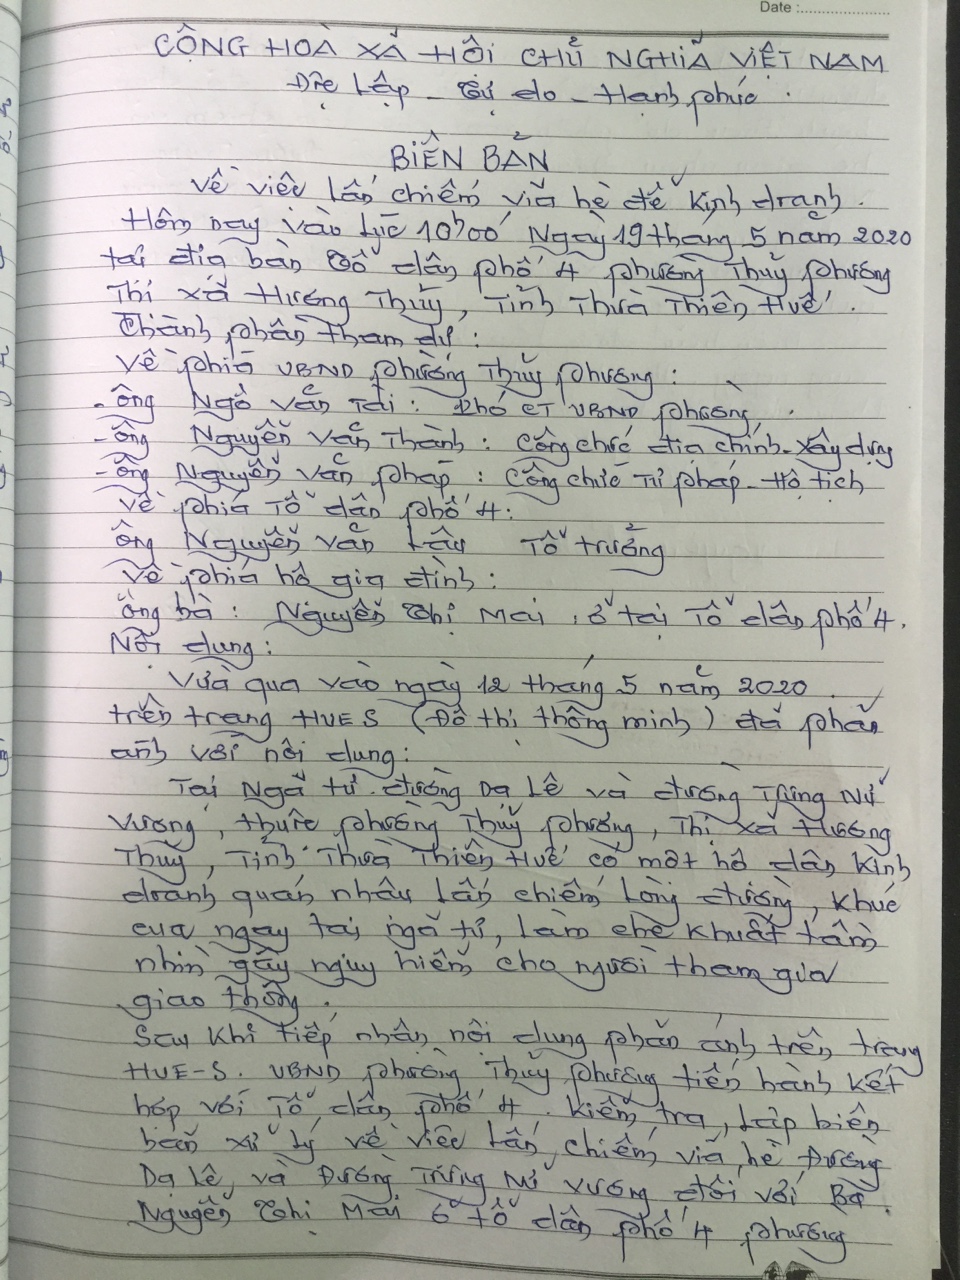 Date :
CỘNG HOÀ XÃ HỘI CHỦ NGHĨA VIỆT NAM
Độc Lập - Tự do - Hạnh phúc.
BIÊN BẢN
Về việc lấn chiếm vỉa hè để kinh doanh.
Hôm nay vào lúc 10h00 Ngày 19 tháng 5 năm 2020
tại địa bàn Tổ dân phố 4 phường Thuỷ phương
Thị xã Hương Thuỷ, Tỉnh Thừa Thiên Huế.
Thành phần tham dự:
Về phía UBND phường Thuỷ phương:
- ông Ngô Văn Tài: Phó CT UBND phường.
- ông Nguyễn Văn Thành: Công chức địa chính - Xây dựng
- ông Nguyễn Văn pháp: Công chức Tư pháp - Hộ tịch
Về phía Tổ dân phố 4:
Ông Nguyễn Văn Lâu Tổ trưởng
Về phía hộ gia đình:
Ông bà: Nguyễn Thị Mai, ở tại Tổ dân phố 4.
Nội dung:
Vừa qua vào ngày 12 tháng 5 năm 2020
trên trang HUE S (Đô thị thông minh) đã phản
ánh với nội dung:
Tại Ngã tư đường Dạ Lê và đường Trưng Nữ
Vương, thuộc phường Thuỷ phương, Thị xã Hương
Thuỷ, Tỉnh Thừa Thiên Huế có một hộ dân Kinh
doanh quán nhậu lấn chiếm lòng đường, khúc
cua ngay tại ngã tư, làm che khuất tầm
nhìn gây nguy hiểm cho người tham gia
giao thông.
Sau khi tiếp nhận nội dung phản ánh trên trang
HUE-S. UBND phường Thuỷ phương tiến hành kết
hợp với Tổ dân phố 4. kiểm tra, lập biên
bản xử lý về việc lấn chiếm vỉa hè Đường
Dạ Lê, và Đường Trưng Nữ Vương đối với Bà
Nguyễn Thị Mai ở tổ dân phố 4 phường